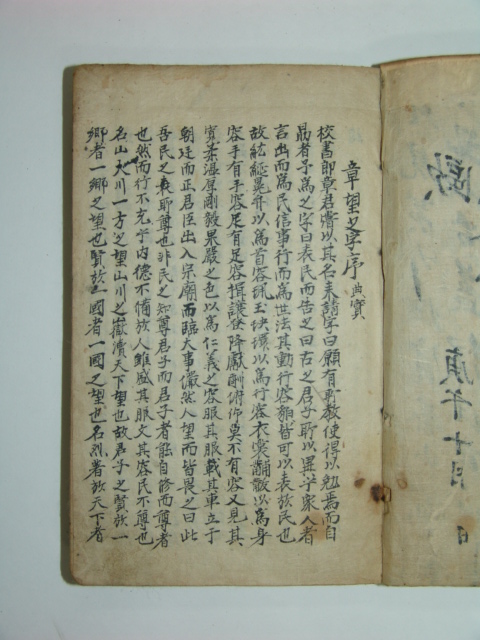 章望之字序 典實
校書郎章君嘗以其名来請字曰願有所教使得以勉焉而自
勗者予爲之字曰表民而告之曰古之君子所以異乎衆人者
言出而爲民信事行而爲世法其動行容貌皆可以表於民也
故紘綖冕弁以爲首容珮玉玦環以爲行容衣裳黼黻以爲身
容手有手容足有足容揖讓登降獻酬俯仰莫不有容又見其
寬柔溫厚剛毅果嚴之色以爲仁義之容服其服載其車立于
朝廷而正君臣出入宗廟而臨大事儼然人望而皆畏之曰此
吾民之所尊也非民之知尊君子而君子者能自修而尊者
也然而行不充乎內德不備於人雖盛其服文其容民不尊也
名山大川一方之望山川之嶽瀆天下望也故君子之賢於一
鄉者一鄉之望也賢於一國者一國之望也名烈著於天下者
庚午十月 日